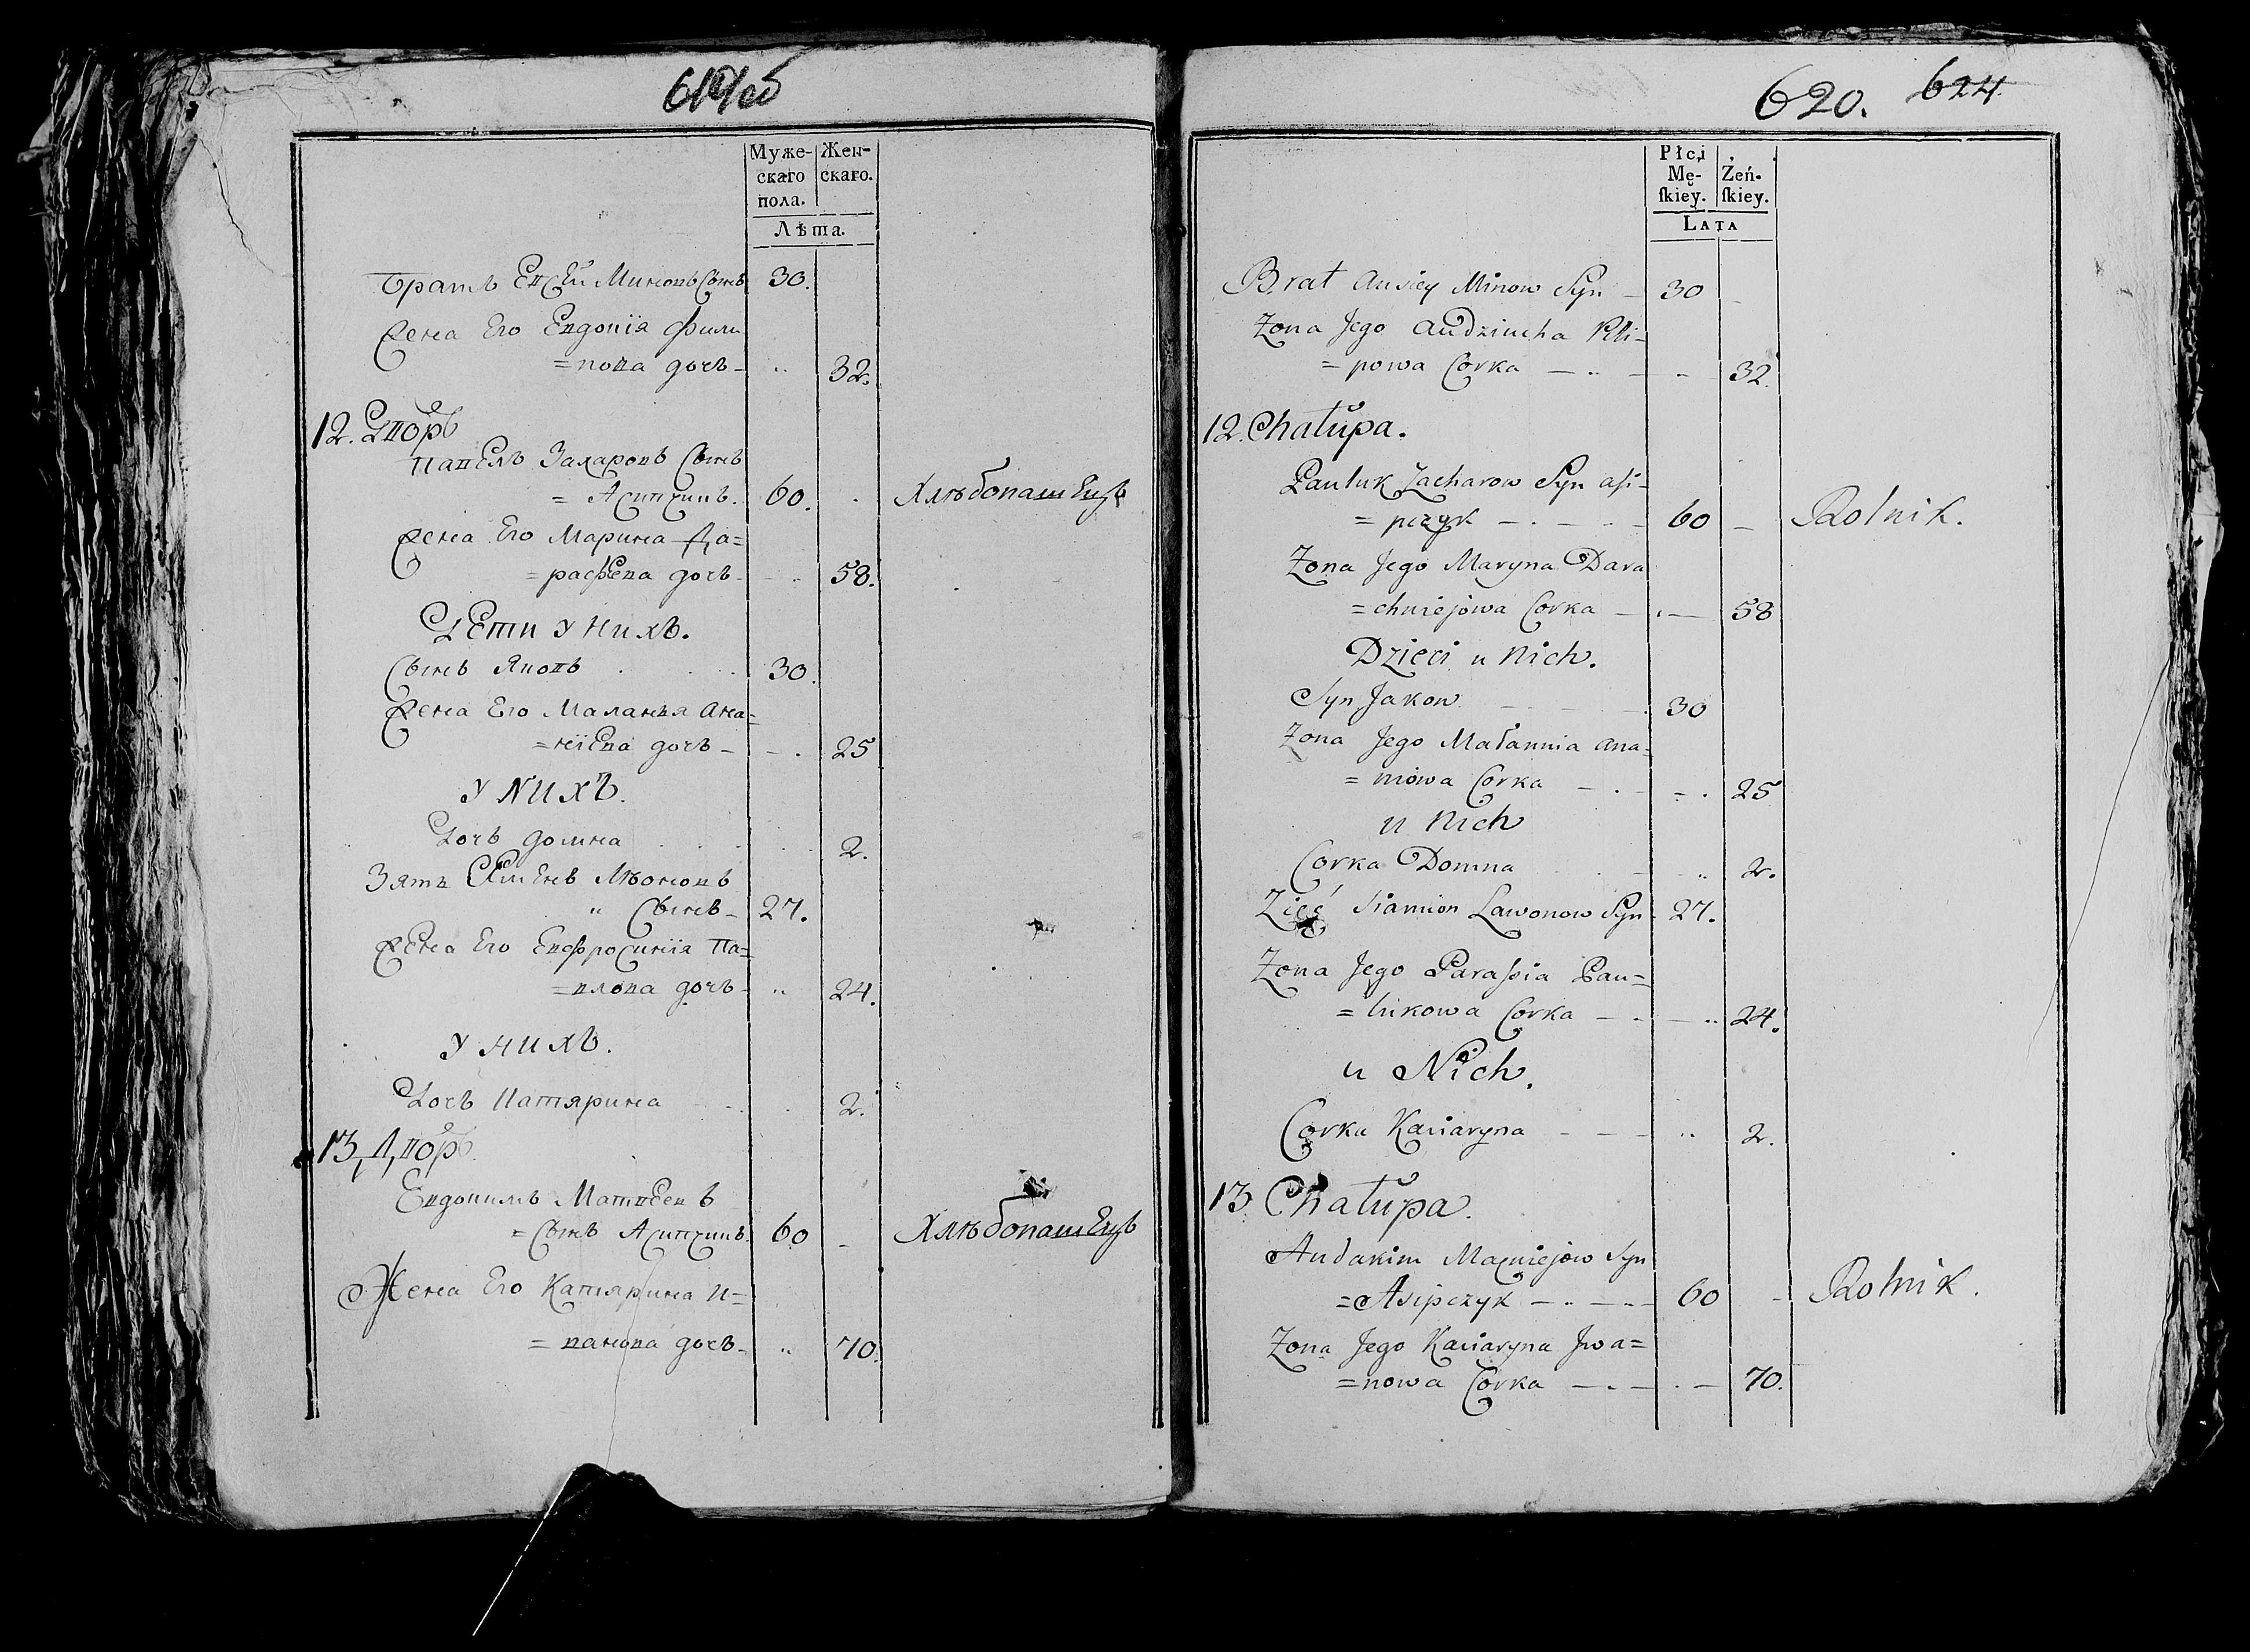 619об
Муже-
скаго
пола.
Жен-
скаго.
Лѣта.
Братъ Евсей Миновъ Сынъ 30.
Жена Его Евдокія Фили
=пова дочь - 32.
12. Дворъ
Павелъ Захаровъ Сынъ
= Асипчикъ. 60. Хлѣбопашецъ
Жена Его Марина Да=
=рафеева дочь - 58.
Дети у нихъ.
Сынъ Яковъ 30.
Жена Его Маланья Ана=
=ніева дочь - 25
у нихъ.
Дочь Домна 2.
Зять Семенъ Лѣоновъ
" Сынъ - 27.
Жена Его Евфросинія Па=
=влова дочь - 24.
у нихъ.
Дочь Катярина 2.
13, Дворъ.
Евдокимъ Матвеевъ
=Сынъ Асипчикъ. 60 Хлѣбопашецъ
Жена Его Катярина И=
=ванова дочь - 70.
620. 624
Płci
Mę-
ſkiey.
Żeń-
ſkiey.
LATA
Brat Ausiey Minow Syn 30
Zona Jego Audziucha Pili=
= powa Corka 32.
12. Chałupa.
Pauluk Zacharow Syn Asi=
= pczyk 60 Rolnik.
Zona Jego Maryna Dara
=chwiejowa Corka 58
Dzieci u Nich.
Syn Jakow 30
Zona Jego Małannia Ana=
= niowa Corka 25
u Nich
Corka Domna 2.
Zięć Siamion Lawonow Syn 27.
Zona Jego Paraſsia Pau=
= lukowa Corka 24.
u Nich.
Corka Kaciaryna 2.
13 Chałupa.
Audakim Maćwiejow Syn
=Asipczyk 60 Rolnik.
Zona Jego Kaciaryna Jwa=
=nowa Corka 70.